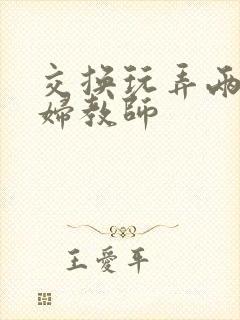 交换玩弄两
婦教師
王愛平